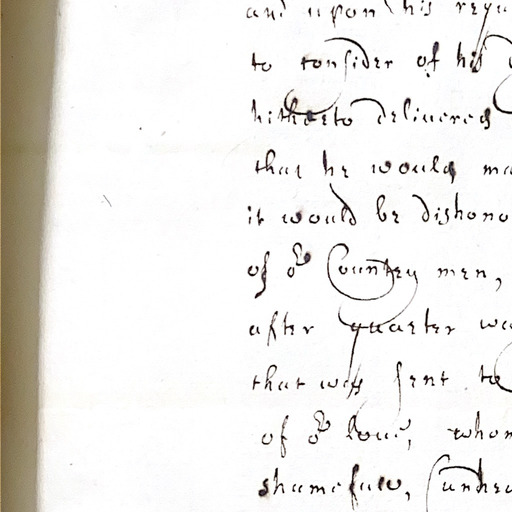 and upon his requ
to consider of his
hitherto delivered
that he would ma
it would be dishono
of or Country men,
after quarter wa
that was sent to
of or Loue, whom
shamefull, sundry